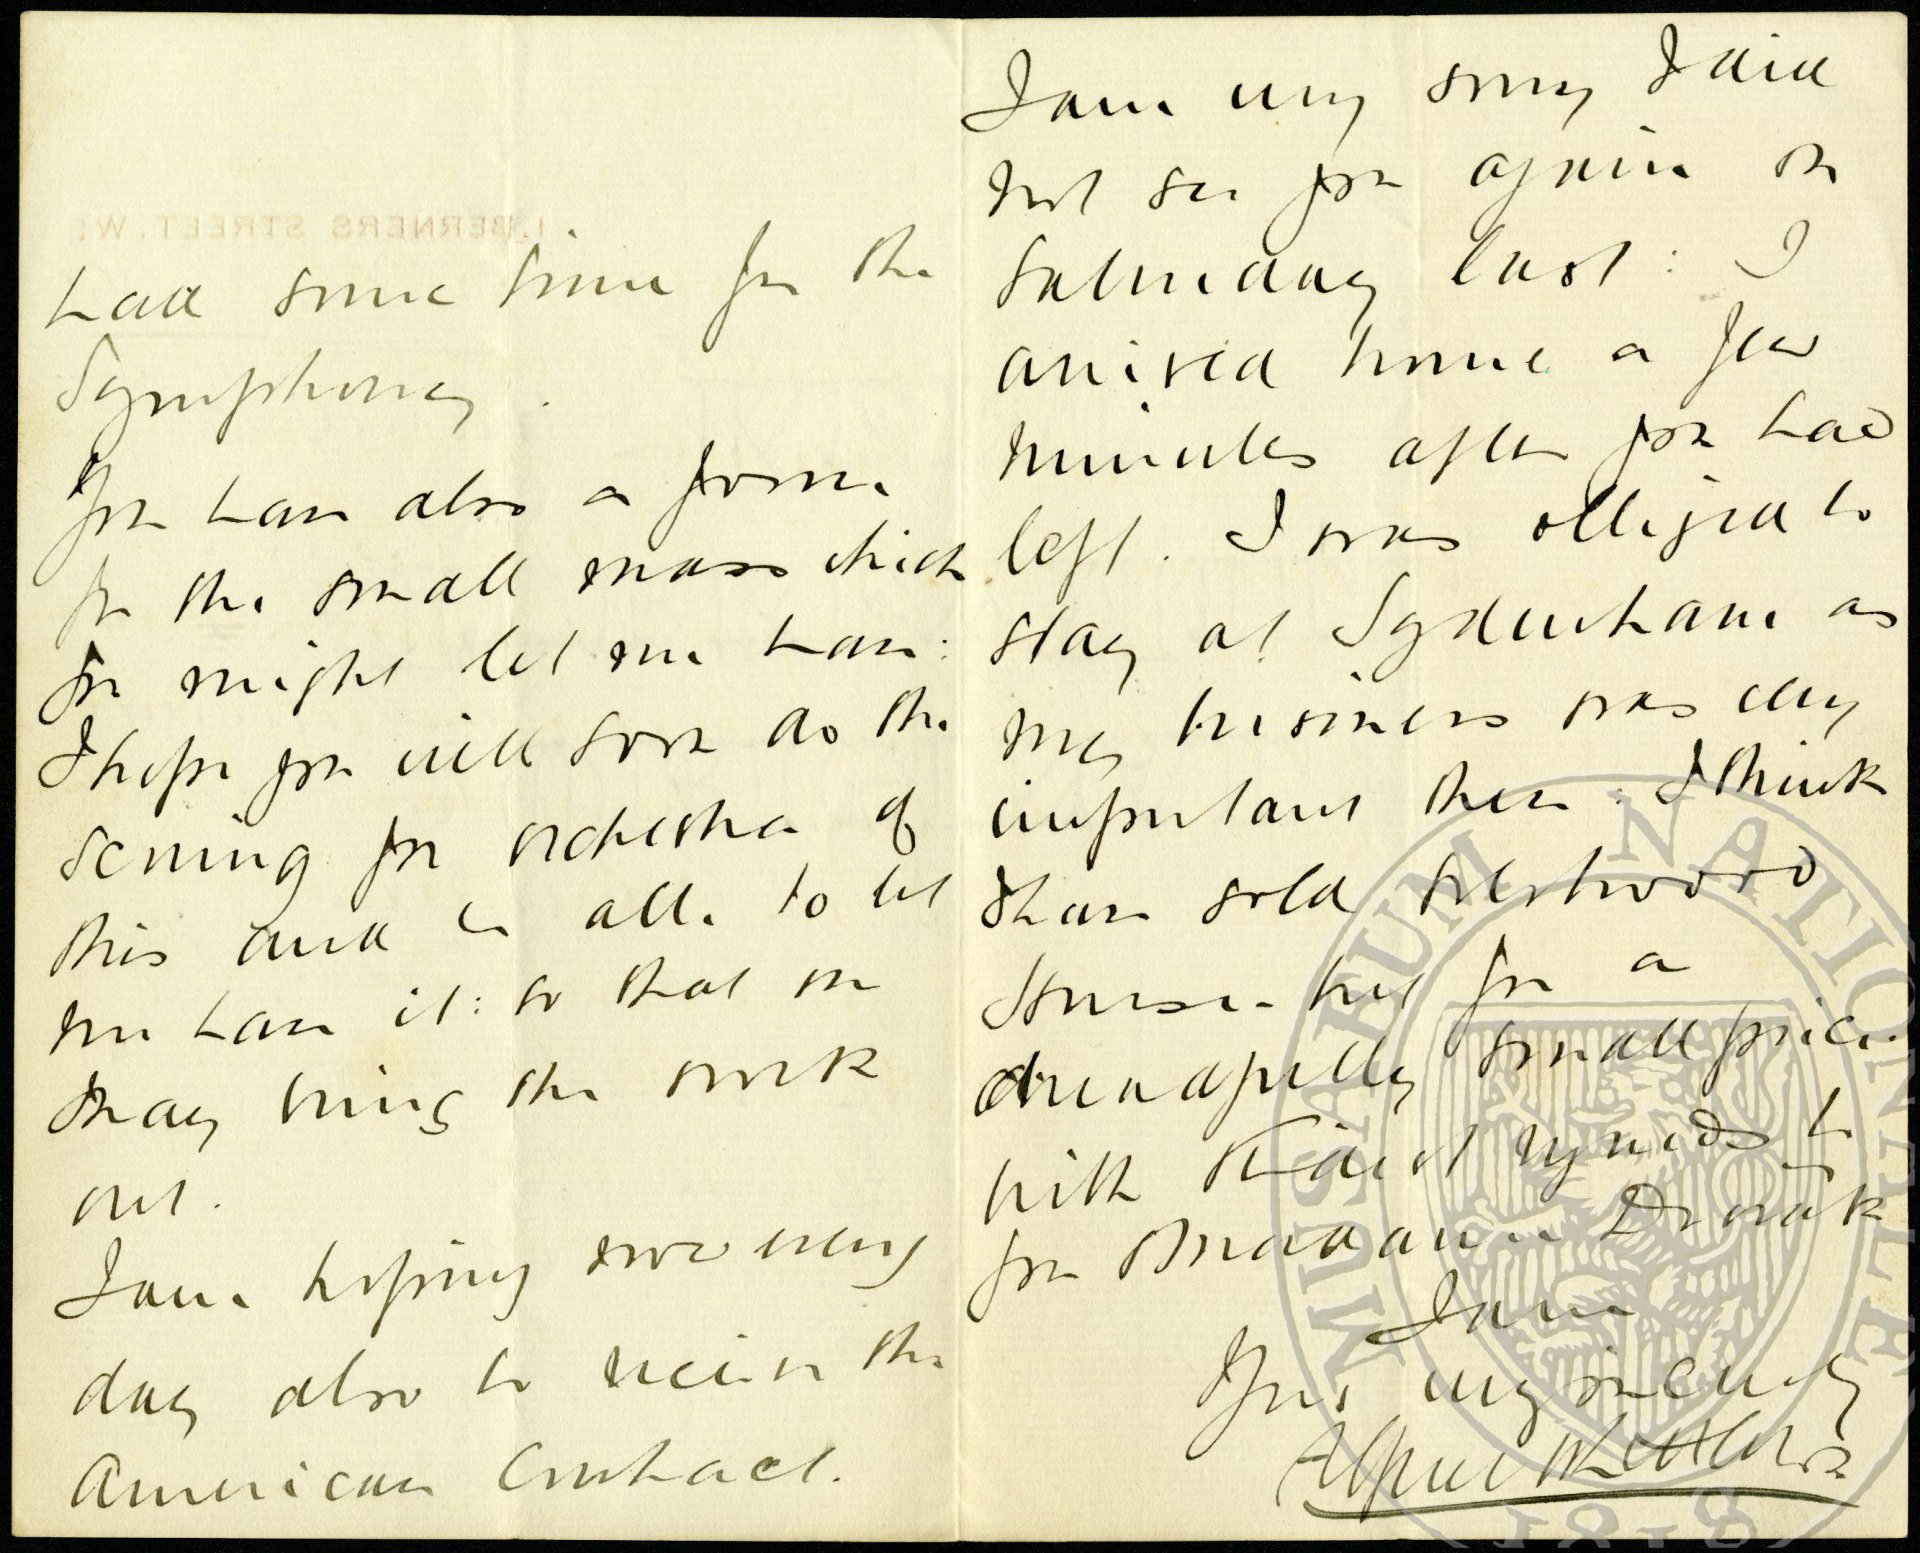 1, BERNERS STREET, W:
had some time for the
Symphony.
You have also a form
for the small mass which
you might let me have:
I hope you will soon do the
scoring for orchestra of
this and be able to let
me have it: so that we
may bring the work
out.
I am hoping now every
day also to receive the
American Contract.
I am very sorry I did
not see you again on
Saturday last: I
arrived home a few
minutes after you had
left. I was obliged to
stay at Sydenham as
my business was very
important there. I think
I have sold Westwood
House - but for a
dreadfully small price.
With kindest regards to
you & Madame Dvorak
I am
Yours very sincerely
Alfred H Littleton
MUSAEUM NATIONALE
1818